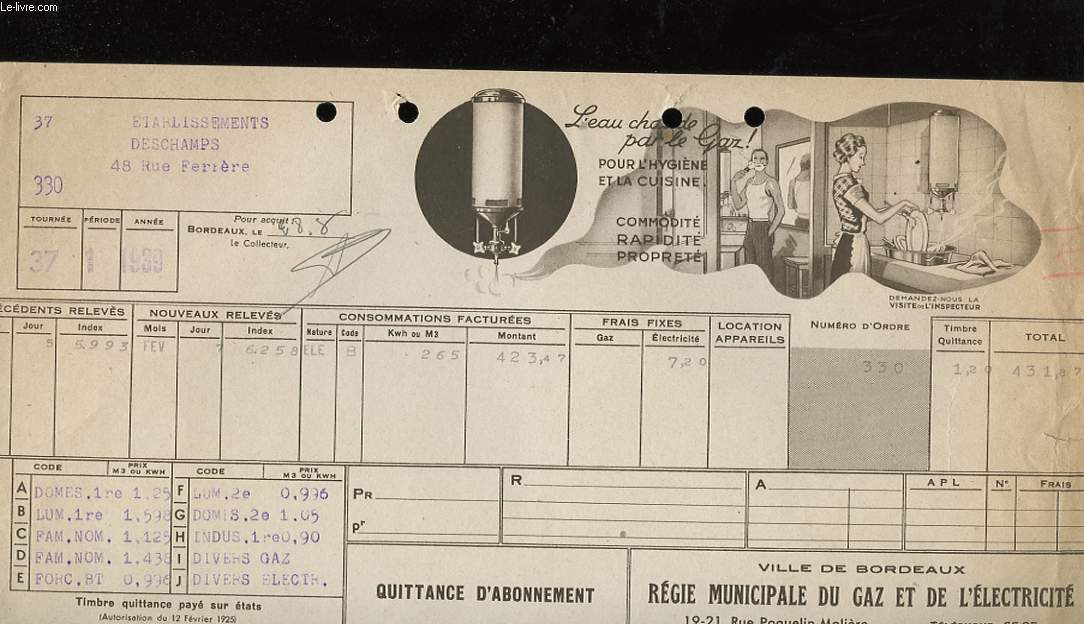 Le-livre.com
37 ETABLISSEMENTS
DESCHAMPS
48 Rue Ferrère
330
TOURNÉE PÉRIODE ANNÉE
37 1
Pour acquit :
BORDEAUX, LE
le Collecteur,
L'eau chaude
par le Gaz!
POUR L'HYGIÈNE
ET LA CUISINE.
COMMODITÉ
RAPIDITÉ
PROPRETÉ
DEMANDEZ-NOUS LA
VISITE DE L'INSPECTEUR
CÉDENTS RELEVÉS NOUVEAUX RELEVÉS CONSOMMATIONS FACTURÉES FRAIS FIXES LOCATION APPAREILS NUMÉRO D'ORDRE Timbre Quittance TOTAL
Jour Index Mois Jour Index Nature Code Kwh ou M3 Montant Gaz Électricité
5 5.993 FEV 7 6.258 ELE B 265 423,47 7,20 330 1,20 431,87
CODE PRIX M3 OU KWH CODE PRIX M3 OU KWH
A DOMES.1re 1.25 F LUM.2e 0,996
B LUM.1re 1,598 G DOMES.2e 1.05
C FAM.NOM. 1,125 H INDUS.1re 0,90
D FAM.NOM. 1,438 I DIVERS GAZ
E FORC.BT 0,996 J DIVERS ELECTR.
PR R A APL N° FRAIS
pr
Timbre quittance payé sur états
(Autorisation du 12 Février 1925)
QUITTANCE D'ABONNEMENT
VILLE DE BORDEAUX
RÉGIE MUNICIPALE DU GAZ ET DE L'ÉLECTRICITÉ
19-21, Rue Poquelin Molière